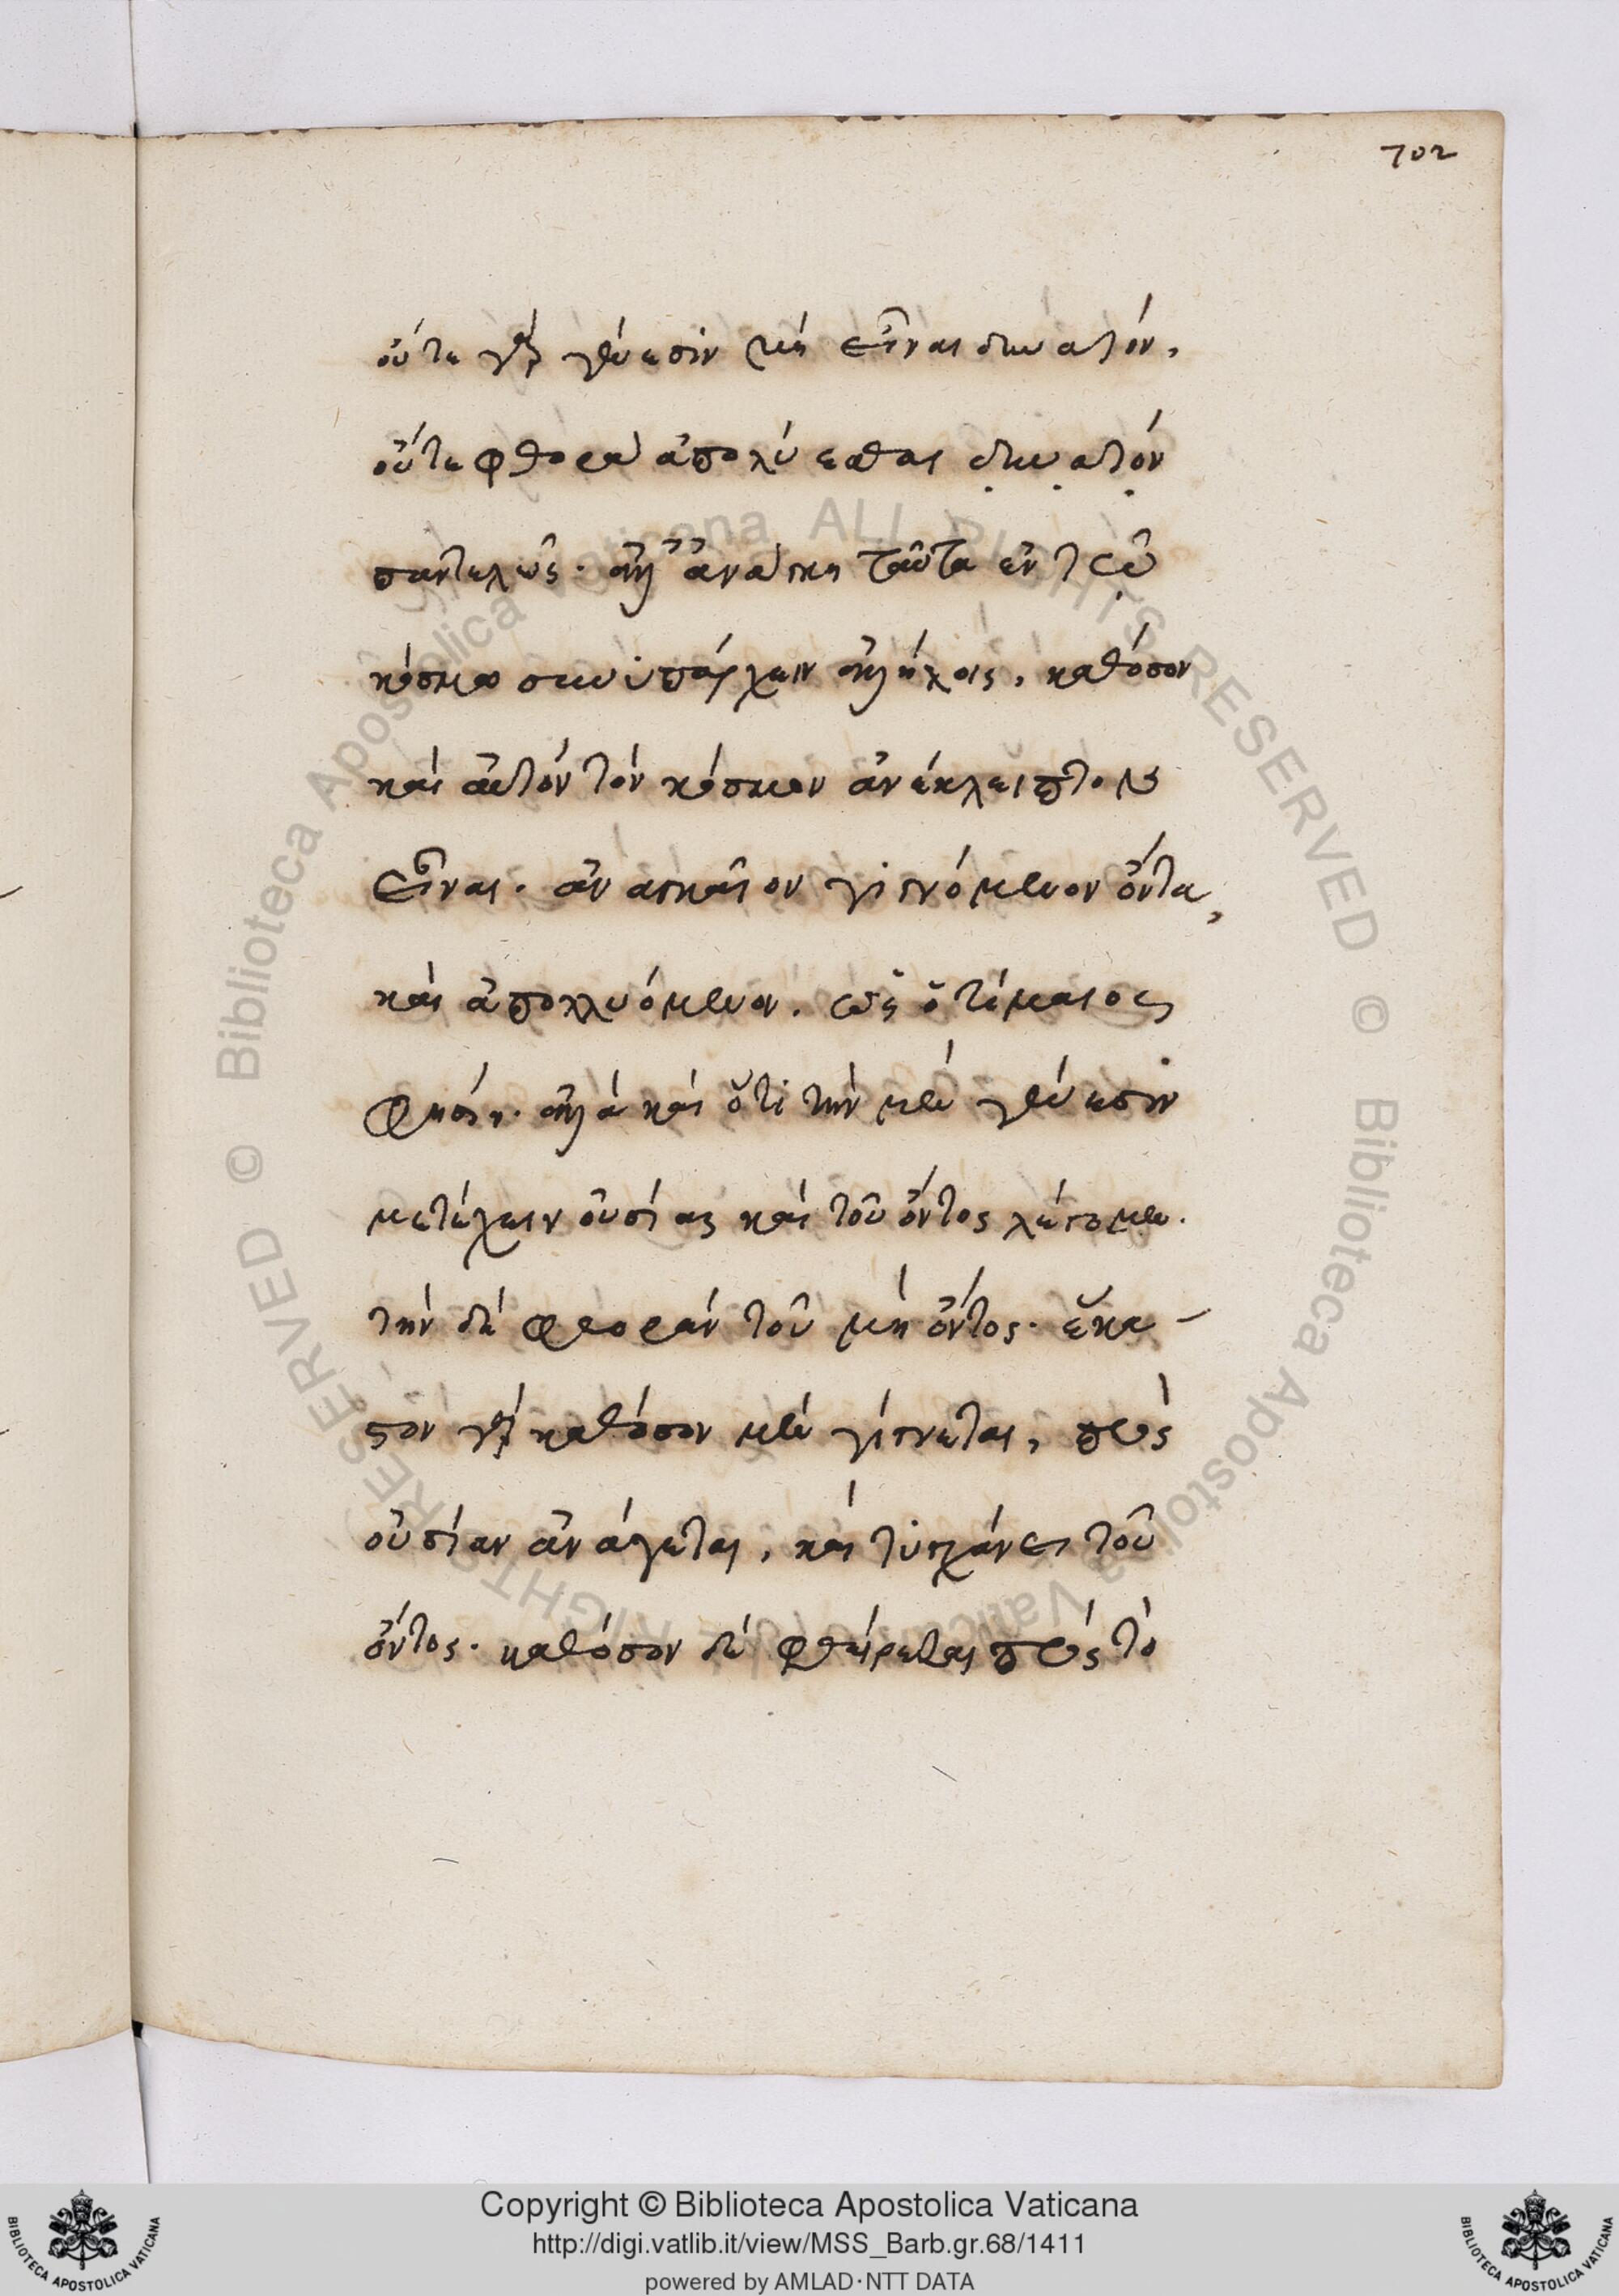 702
οὔτε γὰρ γένεσιν μὴ εἶναι δυνατόν,
οὔτε φθορὰ ἀπολύεσθαι δυνατόν
παντελῶς· ἀλλ' ἀνάγκη ταῦτα ἐν τῶ
κόσμω συνυπάρχειν ἀλλήλοις, καθόσον
καὶ αὐτὸν τὸν κόσμον ἀνέκλειπτον
εἶναι. ἀναγκαῖον γιγνόμενον ὄντα,
καὶ ἀπολλυόμενον. ὡς ὁ τίμαιος
φησίν. ἀλλὰ καὶ ὅτι τὴν μὲν γένεσιν
μετέχειν οὐσίας καὶ τοῦ ὄντος λέγομεν.
τὴν δὲ φθορὰν τοῦ μὴ ὄντος. ἕκα-
στον γὰρ καθόσον μὲν γίγνεται, πρὸς
οὐσίαν ἀνάγεται, καὶ τυγχάνει τοῦ
ὄντος. καθόσον δὲ φθείρεται πρὸς τὸ
© Biblioteca Apostolica Vaticana ALL RIGHTS RESERVED © Biblioteca Apostolica Vaticana ALL RIGHTS RESERVED
Copyright © Biblioteca Apostolica Vaticana
http://digi.vatlib.it/view/MSS_Barb.gr.68/1411
powered by AMLAD·NTT DATA
BIBLIOTECA APOSTOLICA VATICANA
BIBLIOTECA APOSTOLICA VATICANA